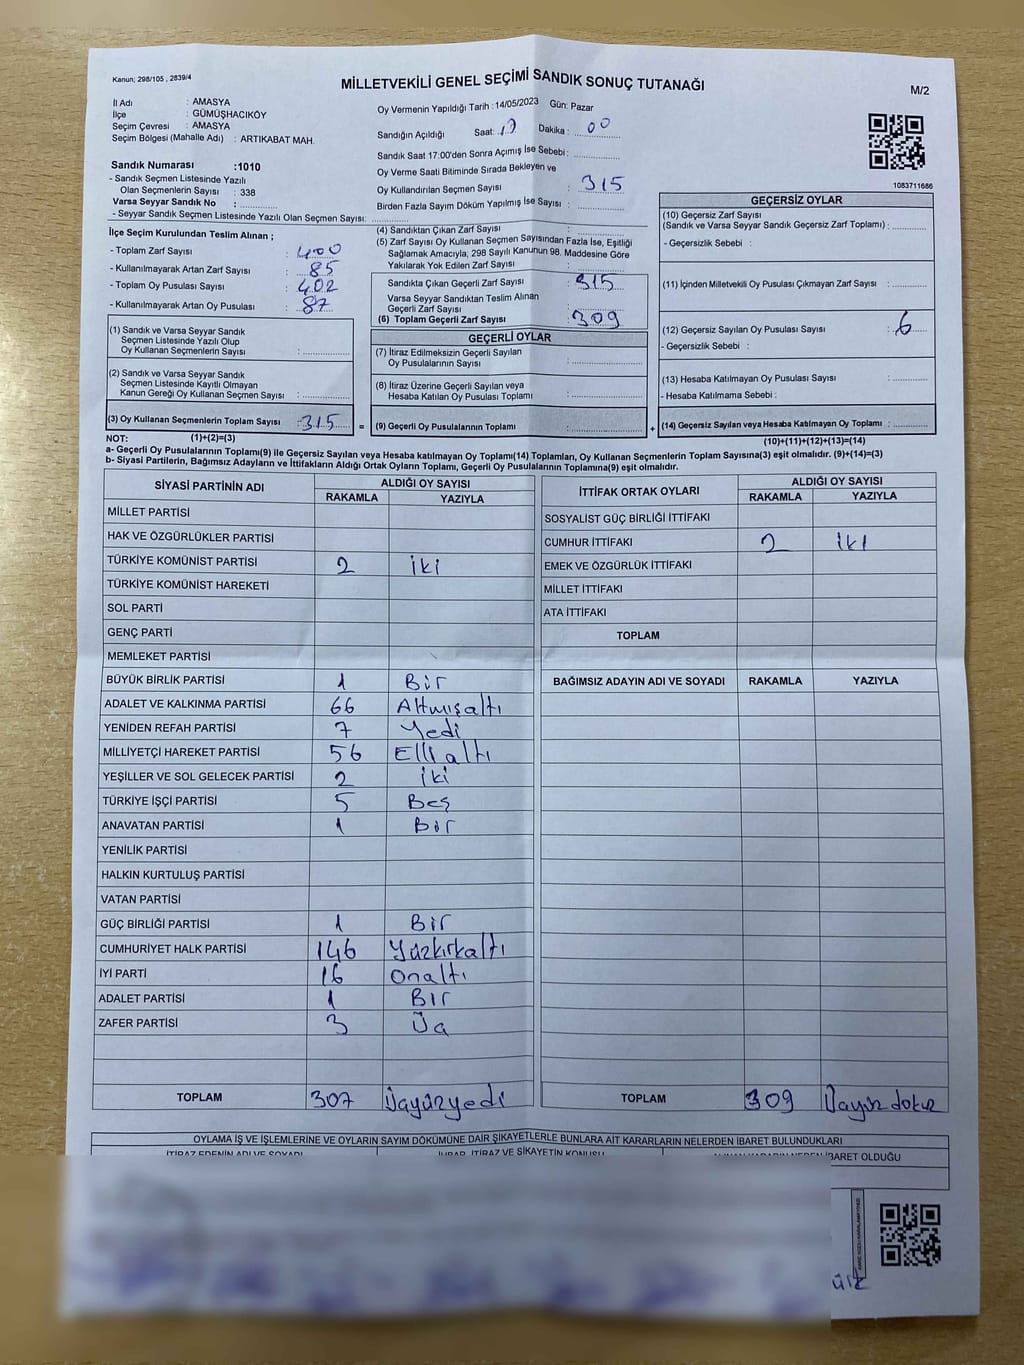 Kanun; 298/105 , 2839/4
MİLLETVEKİLİ GENEL SEÇİMİ SANDIK SONUÇ TUTANAĞI
M/2
İl Adı : AMASYA
İlçe : GÜMÜŞHACIKÖY
Seçim Çevresi : AMASYA
Seçim Bölgesi (Mahalle Adı) : ARTIKABAT MAH.
Oy Vermenin Yapıldığı Tarih : 14/05/2023 Gün: Pazar
Sandığın Açıldığı Saat: 17 Dakika : 00
Sandık Saat 17:00'den Sonra Açımış İse Sebebi :
Oy Verme Saati Bitiminde Sırada Bekleyen ve
Oy Kullandırılan Seçmen Sayısı : 315
Birden Fazla Sayım Döküm Yapılmış İse Sayısı :
1083711686
Sandık Numarası :1010
- Sandık Seçmen Listesinde Yazılı
Olan Seçmenlerin Sayısı : 338
Varsa Seyyar Sandık No :
- Seyyar Sandık Seçmen Listesinde Yazılı Olan Seçmen Sayısı:
İlçe Seçim Kurulundan Teslim Alınan ;
- Toplam Zarf Sayısı : 400
- Kullanılmayarak Artan Zarf Sayısı : 85
- Toplam Oy Pusulası Sayısı : 402
- Kullanılmayarak Artan Oy Pusulası : 87
(1) Sandık ve Varsa Seyyar Sandık
Seçmen Listesinde Yazılı Olup
Oy Kullanan Seçmenlerin Sayısı :
(2) Sandık ve Varsa Seyyar Sandık
Seçmen Listesinde Kayıtlı Olmayan
Kanun Gereği Oy Kullanan Seçmen Sayısı :
(3) Oy Kullanan Seçmenlerin Toplam Sayısı : 315
(4) Sandıktan Çıkan Zarf Sayısı :
(5) Zarf Sayısı Oy Kullanan Seçmen Sayısından Fazla İse, Eşitliği
Sağlamak Amacıyla, 298 Sayılı Kanunun 98. Maddesine Göre
Yakılarak Yok Edilen Zarf Sayısı :
Sandıkta Çıkan Geçerli Zarf Sayısı : 315
Varsa Seyyar Sandıktan Teslim Alınan
Geçerli Zarf Sayısı :
(6) Toplam Geçerli Zarf Sayısı : 309
GEÇERLİ OYLAR
(7) İtiraz Edilmeksizin Geçerli Sayılan
Oy Pusulalarının Sayısı :
(8) İtiraz Üzerine Geçerli Sayılan veya
Hesaba Katılan Oy Pusulası Toplamı :
= (9) Geçerli Oy Pusulalarının Toplamı :
GEÇERSİZ OYLAR
(10) Geçersiz Zarf Sayısı
(Sandık ve Varsa Seyyar Sandık Geçersiz Zarf Toplamı) :
- Geçersizlik Sebebi :
(11) İçinden Milletvekili Oy Pusulası Çıkmayan Zarf Sayısı :
(12) Geçersiz Sayılan Oy Pusulası Sayısı : 6
- Geçersizlik Sebebi :
(13) Hesaba Katılmayan Oy Pusulası Sayısı :
- Hesaba Katılmama Sebebi :
+ (14) Geçersiz Sayılan veya Hesaba Katılmayan Oy Toplamı :
NOT: (1)+(2)=(3)
(10)+(11)+(12)+(13)=(14)
a- Geçerli Oy Pusulasının Toplamı(9) ile Geçersiz Sayılan veya Hesaba katılmayan Oy Toplamı(14) Toplamları, Oy Kullanan Seçmenlerin Toplam Sayısına(3) eşit olmalıdır. (9)+(14)=(3)
b- Siyasi Partilerin, Bağımsız Adayların ve İttifakların Aldığı Ortak Oyların Toplamı, Geçerli Oy Pusulalarının Toplamına(9) eşit olmalıdır.
SİYASİ PARTİNİN ADI
ALDIĞI OY SAYISI
RAKAMLA YAZIYLA
MİLLET PARTİSİ
HAK VE ÖZGÜRLÜKLER PARTİSİ
TÜRKİYE KOMÜNİST PARTİSİ 2 iki
TÜRKİYE KOMÜNİST HAREKETİ
SOL PARTİ
GENÇ PARTİ
MEMLEKET PARTİSİ
BÜYÜK BİRLİK PARTİSİ 1 Bir
ADALET VE KALKINMA PARTİSİ 66 Altmışaltı
YENİDEN REFAH PARTİSİ 7 Yedi
MİLLİYETÇİ HAREKET PARTİSİ 56 Elli altı
YEŞİLLER VE SOL GELECEK PARTİSİ 2 iki
TÜRKİYE İŞÇİ PARTİSİ 5 Beş
ANAVATAN PARTİSİ 1 Bir
YENİLİK PARTİSİ
HALKIN KURTULUŞ PARTİSİ
VATAN PARTİSİ
GÜÇ BİRLİĞİ PARTİSİ 1 Bir
CUMHURİYET HALK PARTİSİ 146 Yüzkırkaltı
İYİ PARTİ 16 Onaltı
ADALET PARTİSİ 1 Bir
ZAFER PARTİSİ 3 Üç
TOPLAM 307 Üçyüzyedi
İTTİFAK ORTAK OYLARI
ALDIĞI OY SAYISI
RAKAMLA YAZIYLA
SOSYALİST GÜÇ BİRLİĞİ İTTİFAKI
CUMHUR İTTİFAKI 2 iki
EMEK VE ÖZGÜRLÜK İTTİFAKI
MİLLET İTTİFAKI
ATA İTTİFAKI
TOPLAM
BAĞIMSIZ ADAYIN ADI VE SOYADI RAKAMLA YAZIYLA
TOPLAM 309 Üçyüz dokuz
OYLAMA İŞ VE İŞLEMLERİNE VE OYLARIN SAYIM DÖKÜMÜNE DAİR ŞİKAYETLERLE BUNLARA AİT KARARLARIN NELERDEN İBARET BULUNDUKLARI
İTİRAZ EDENİN ADI VE SOYADI
İHBAR, İTİRAZ VE ŞİKAYETİN KONUSU
İBARET OLDUĞU